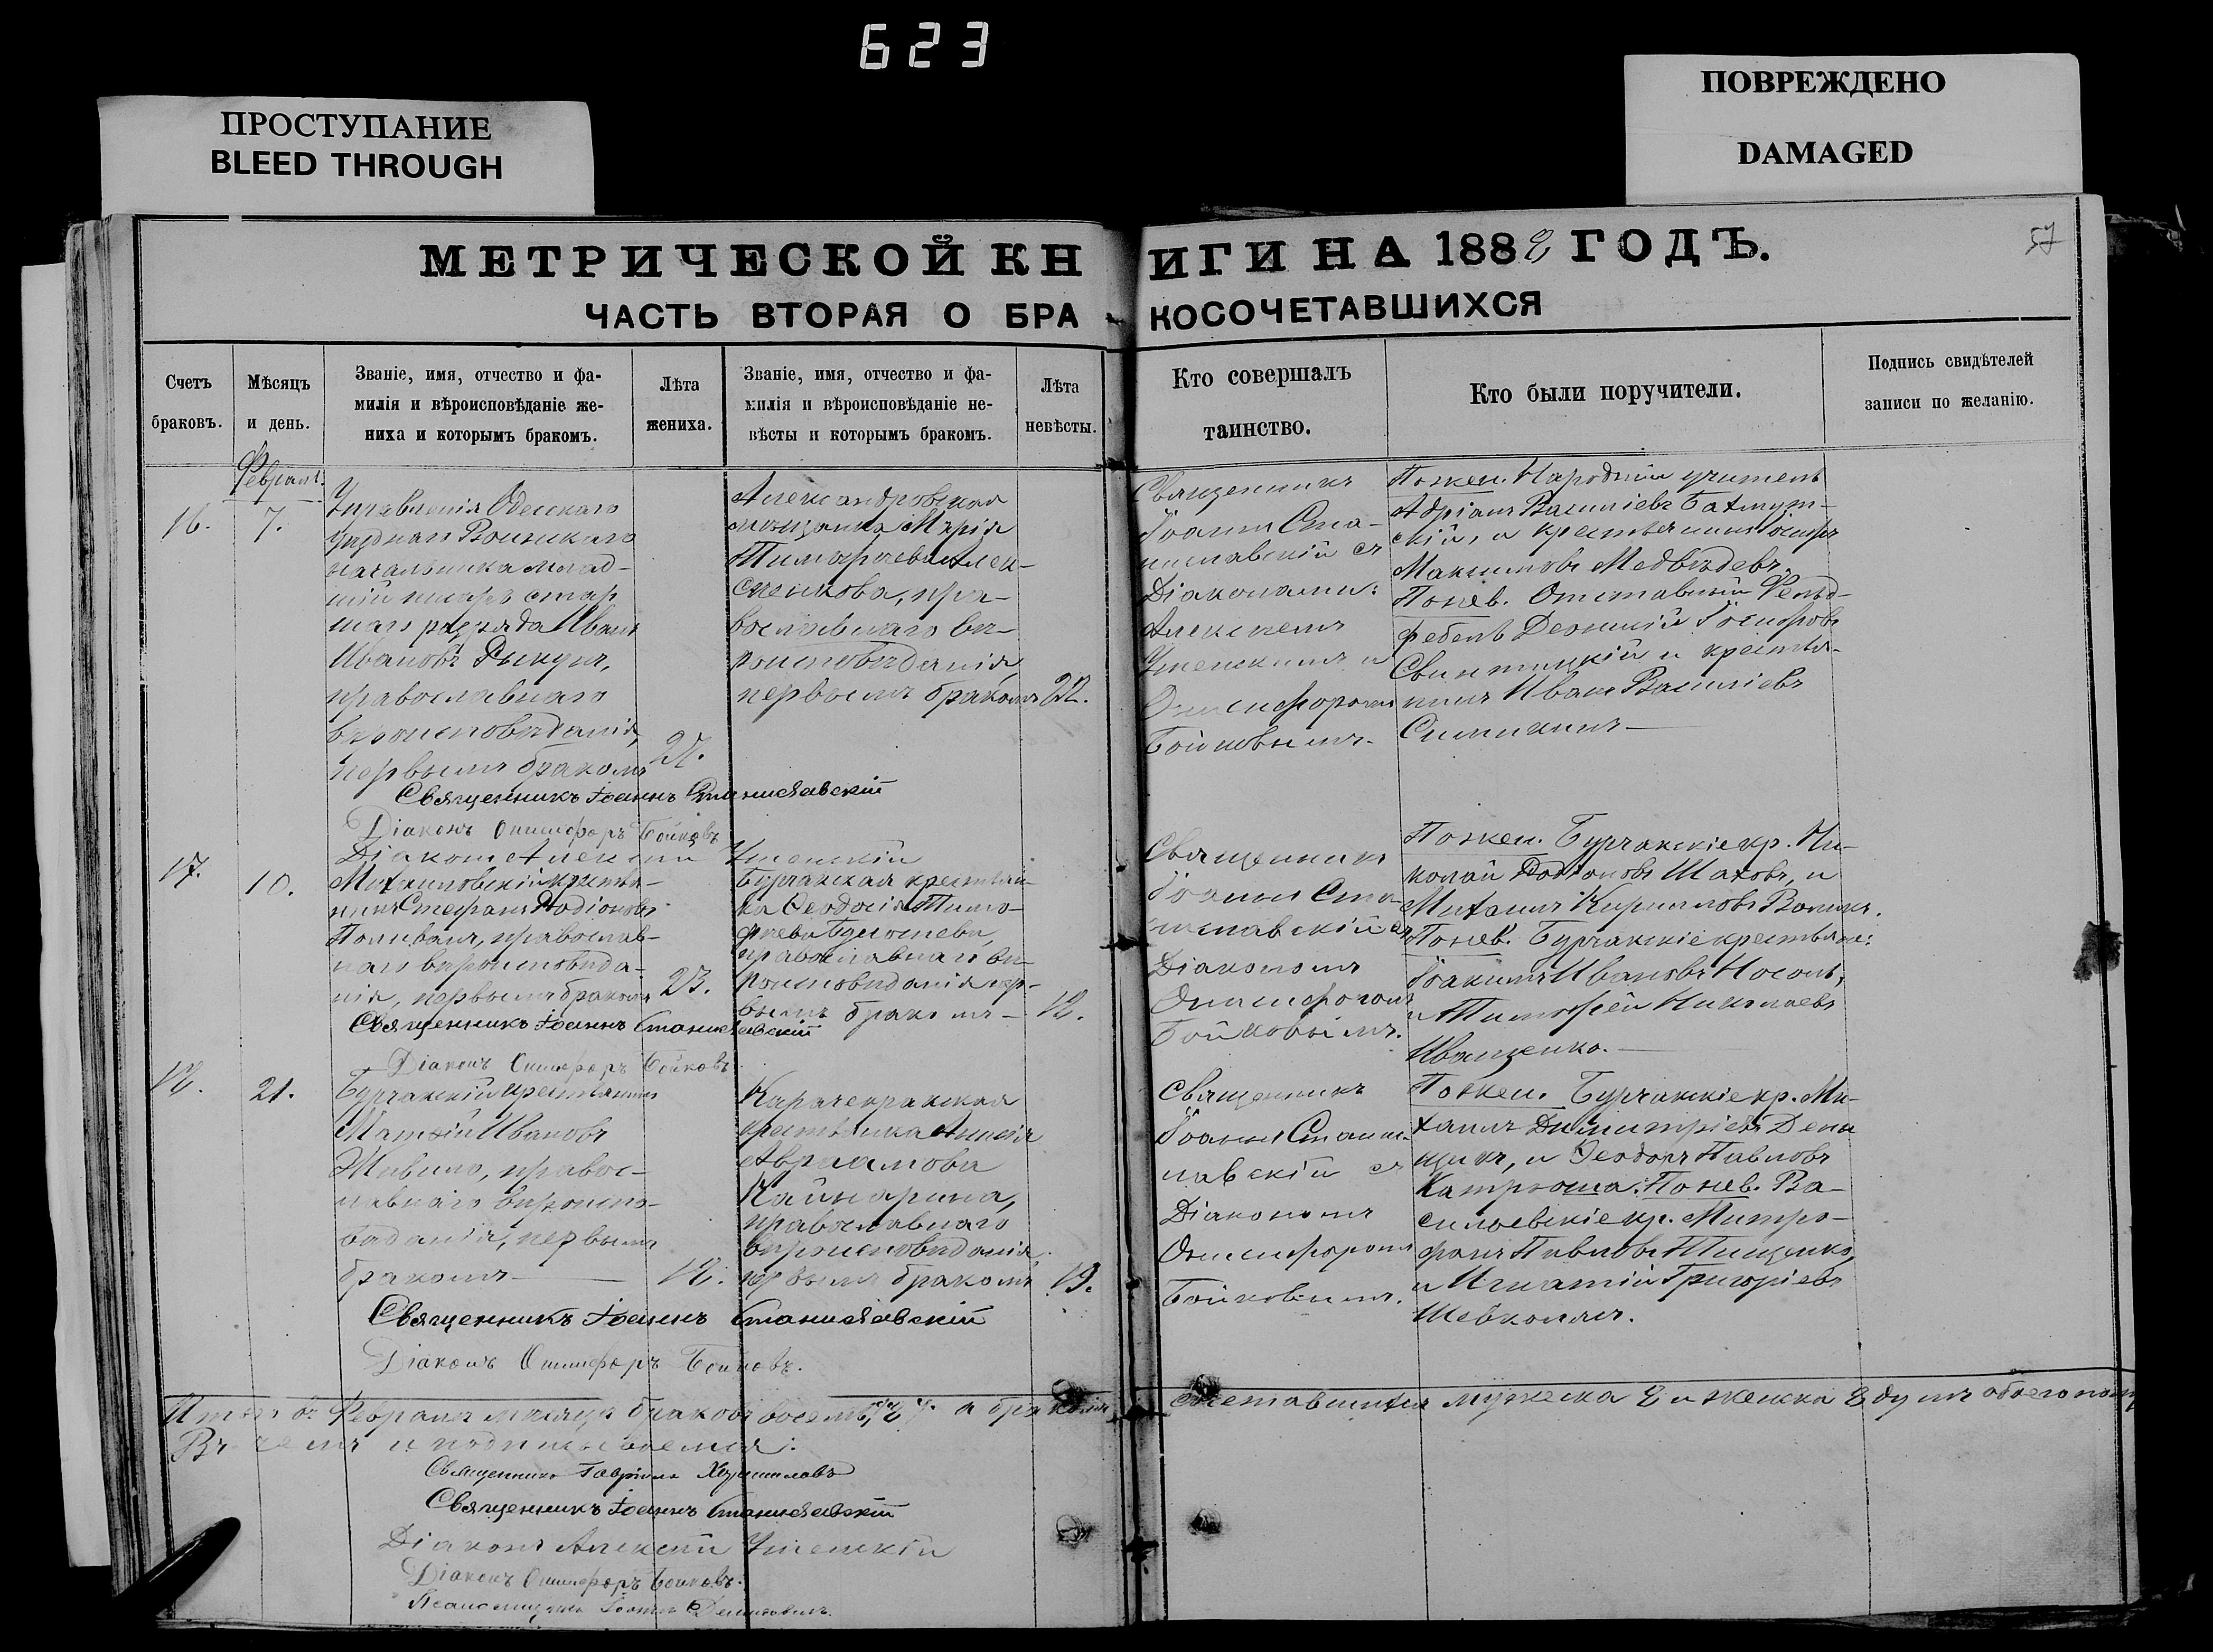 623
ПРОСТУПАНИЕ
BLEED THROUGH
ПОВРЕЖДЕНО
DAMAGED
57
МЕТРИЧЕСКОЙ КНИГИ НА 1888 ГОДЪ.
ЧАСТЬ ВТОРАЯ О БРАКОСОЧЕТАВШИХСЯ
Счетъ
браковъ.
Мѣсяцъ
и день.
Званіе, имя, отчество и фа-
милія и вѣроисповѣданіе же-
ниха и которымъ бракомъ.
Лѣта
жениха.
Званіе, имя, отчество и фа-
милія и вѣроисповѣданіе не-
вѣсты и которымъ бракомъ.
Лѣта
невѣсты.
Кто совершалъ
таинство.
Кто были поручители.
Подпись свидѣтелей
записи по желанію.
Февраль.
16.
7.
Управленія Одесскаго
уѣзднаго Воинскаго
начальника млад-
шій писарь стар
шаго разряда Иванъ
Ивановъ
православнаго
вѣроисповѣданія,
первымъ бракомъ
27.
Александровская
мѣщанка Марія
Тимофеева Алек-
сеенкова, пра-
вославнаго вѣ-
роисповѣданія,
первымъ бракомъ
22.
Священникъ
Іоаннъ Ста-
ниславскій съ
Діаконами:
Алексіемъ
Успенскимъ и
Онисифоромъ
Бойковымъ.
По жен. Народный учитель
Адріанъ Василіевъ Бахмут-
скій, и крестьянинъ Іосифъ
Максимовъ Медвѣдевъ.
По нев. Отставный Фельд-
фебель Іосифовъ
и крестья-
нинъ Иванъ Василіевъ
Священникъ Іоаннъ Станиславскій
Діаконъ Онисифоръ Бойковъ
Діаконъ Алексій Успенскій
17.
10.
Михайловскій крестья-
нинъ Стефанъ Родіоновъ
Поливанъ, православ-
наго вѣроисповѣда-
нія, первымъ бракомъ
23.
Бурчакская крестьян-
ка Ѳеодосія Тимо-
феева
православнаго вѣ-
роисповѣданія пер-
вымъ бракомъ
18.
Священникъ
Іоаннъ Ста-
ниславскій съ
Діакономъ
Онисифоромъ
Бойковымъ.
По жен. Бурчакскіе кр. Ни-
колай Родіоновъ Шаховъ, и
Михаилъ Кирилловъ
По нев. Бурчакскіе крестьяне:
Іоакимъ Ивановъ Носоль,
и Тимофей Николаевъ
Иващенко.
Священникъ Іоаннъ Станиславскій
Діаконъ Онисифоръ Бойковъ
18.
21.
Бурчакскій крестьянинъ
Матѳій Ивановъ
Живило, правос-
лавнаго вѣроиспо-
вѣданія, первымъ
бракомъ
18.
Карачекракская
крестьянка Анисія
Авраамова
Кайнарина,
православнаго
вѣроисповѣданія,
первымъ бракомъ
19.
Священникъ
Іоаннъ Станис-
лавскій съ
Діакономъ
Онисифоромъ
Бойковымъ.
По жен. Бурчакскіе кр. Ми-
хаилъ Димитріевъ Дени
щикъ, и Ѳеодоръ Павловъ
Катрюша: По нев. Ва-
сильевскіе кр. Митро-
фанъ Павловъ Тищенко,
и Игнатій Григорьевъ
Шевколясъ.
Священникъ Іоаннъ Станиславскій
Діаконъ Онисифоръ Бойковъ.
Итого въ Февралѣ мѣсяцѣ браковъ восемь, а бракомъ сочетавшихся мужеска 8 и женска 8 душъ обоего пола
Въ чемъ и подписываемся:
Священникъ Гавріилъ
Священникъ Іоаннъ Станиславскій
Діаконъ Алексій Успенскій
Діаконъ Онисифоръ Бойковъ.
Псаломщикъ Іоаннъ